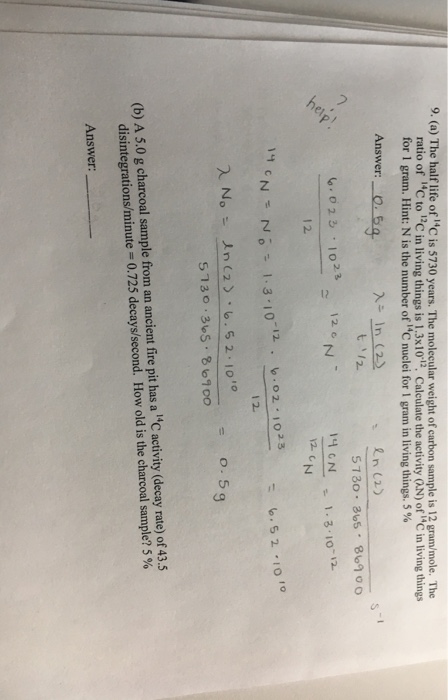 9. (a) The half life of ¹⁴C is 5730 years. The molecular weight of carbon sample is 12 gram/mole. The
ratio of ¹⁴C to ¹²C in living things is 1.3x10⁻¹². Calculate the activity (λN) of ¹⁴C in living things
for 1 gram. Hint: N is the number of ¹⁴C nuclei for 1 gram in living things. 5 %
Answer: 0.5g λ = ln(2) / t 1/2 = ln(2) / 5730·365·86900 s⁻¹
? help!
6.023·10²³ / 12 = 12CN - 14CN / 12CN = 1.3·10⁻¹²
14CN = N₀ = 1.3·10⁻¹² · 6.02·10²³ / 12 = 6.52·10¹⁰
λN₀ = ln(2)·6.52·10¹⁰ / 5730·365·86900 = 0.5g
(b) A 5.0 g charcoal sample from an ancient fire pit has a ¹⁴C activity (decay rate) of 43.5
disintegrations/minute = 0.725 decays/second. How old is the charcoal sample? 5 %
Answer: